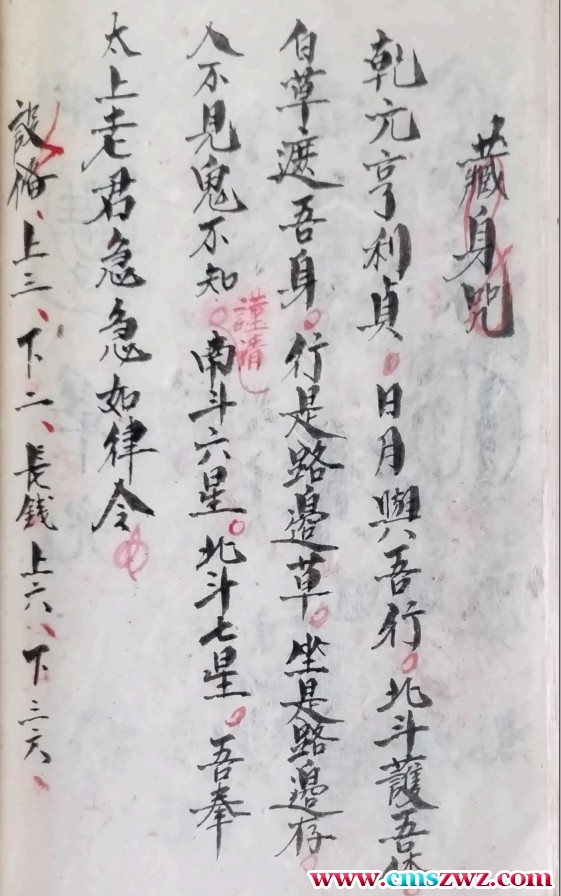 藏身咒
乾元亨利貞。日月與吾行。北斗護吾体
白草遮吾身。行是路邊草。坐是路邊存。
人不見鬼不知。謹請南斗六星。北斗七星。吾奉
太上老君急急如律令
設俻、上三、下二、長錢上六、下三六、
www.cmszwz.com